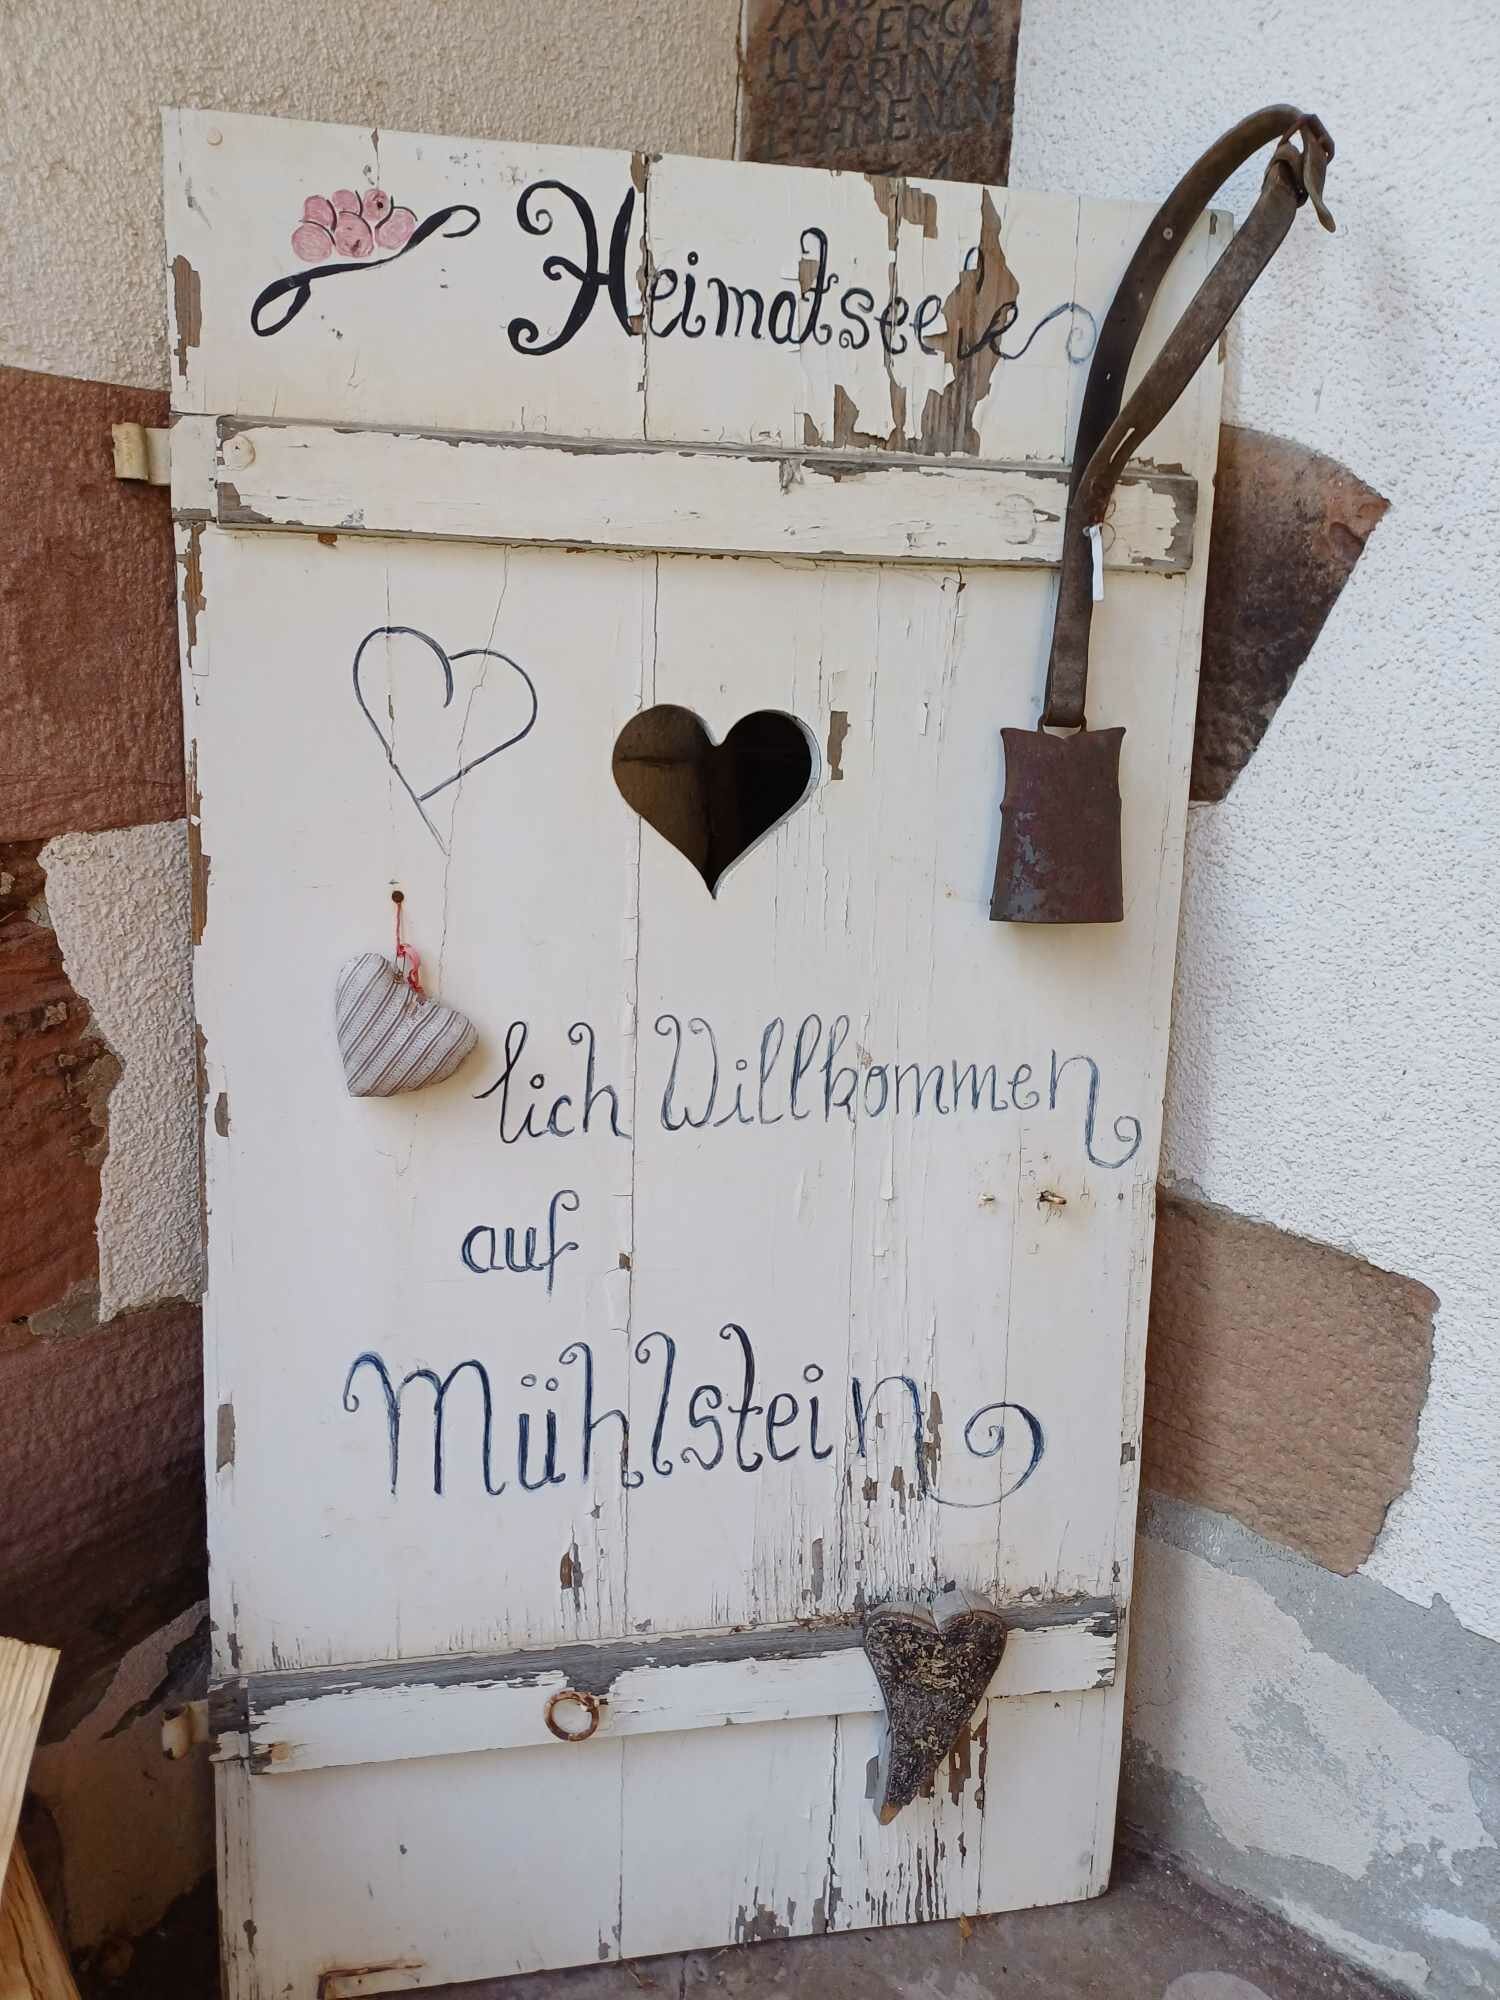 MVSER·CA
THARINA
LEHMENIN
Heimatseele
lich Willkommen
auf
Mühlstein